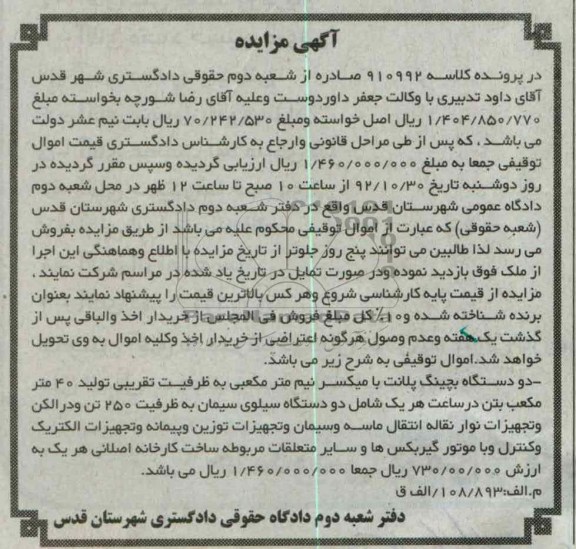 آگهی مزایده
در پرونده کلاسه ۹۱۰۹۹۲ صادره از شعبه دوم حقوقی دادگستری شهر قدس
آقای داود تدبیری با وکالت جعفر داوردوست وعلیه آقای رضا شورچه بخواسته مبلغ
۱/۴۰۴/۸۵۰/۷۷۰ ریال اصل خواسته ومبلغ ۷۰/۲۴۲/۵۳۰ ریال بابت نیم عشر دولت
می باشد ، که پس از طی مراحل قانونی وارجاع به کارشناس دادگستری قیمت اموال
توقیفی جمعا به مبلغ ۱/۴۶۰/۰۰۰/۰۰۰ ریال ارزیابی گردیده وسپس مقرر گردیده در
روز دوشنبه تاریخ ۹۲/۱۰/۳۰ از ساعت ۱۰ صبح تا ساعت ۱۲ ظهر در محل شعبه دوم
دادگاه عمومی شهرستان قدس واقع در دفتر شعبه دوم دادگستری شهرستان قدس
(شعبه حقوقی) که عبارت از اموال توقیفی محکوم علیه می باشد از طریق مزایده بفروش
می رسد لذا طالبین می توانند پنج روز جلوتر از تاریخ مزایده با اطلاع وهماهنگی این اجرا
از ملک فوق بازدید نموده ودر صورت تمایل در تاریخ یاد شده در مراسم شرکت نمایند ،
مزایده از قیمت پایه کارشناسی شروع وهر کس بالاترین قیمت را پیشنهاد نمایند بعنوان
برنده شناخته شده و۱۰٪ کل مبلغ فروش فی المجلس از خریدار اخذ والباقی پس از
گذشت یک هفته وعدم وصول هرگونه اعتراضی از خریدار اخذ وکلیه اموال به وی تحویل
خواهد شد.اموال توقیفی به شرح زیر می باشد.
-دو دستگاه بچینگ پلانت با میکسر نیم متر مکعبی به ظرفیت تقریبی تولید ۴۰ متر
مکعب بتن درساعت هر یک شامل دو دستگاه سیلوی سیمان به ظرفیت ۲۵۰ تن ودرالکن
وتجهیزات نوار نقاله انتقال ماسه وسیمان وتجهیزات توزین وپیمانه وتجهیزات الکتریک
وکنترل وبا موتور گیربکس ها و سایر متعلقات مربوطه ساخت کارخانه اصلانی هر یک به
ارزش ۷۳۰/۰۰/۰۰۰ ریال جمعا ۱/۴۶۰/۰۰۰/۰۰۰ ریال می باشد.
م.الف:۱۰۸/۸۹۳/الف ق
دفتر شعبه دوم دادگاه حقوقی دادگستری شهرستان قدس